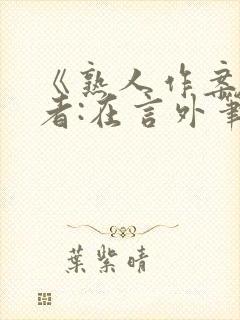 《熟人作案
者:在言外筆
葉紫晴